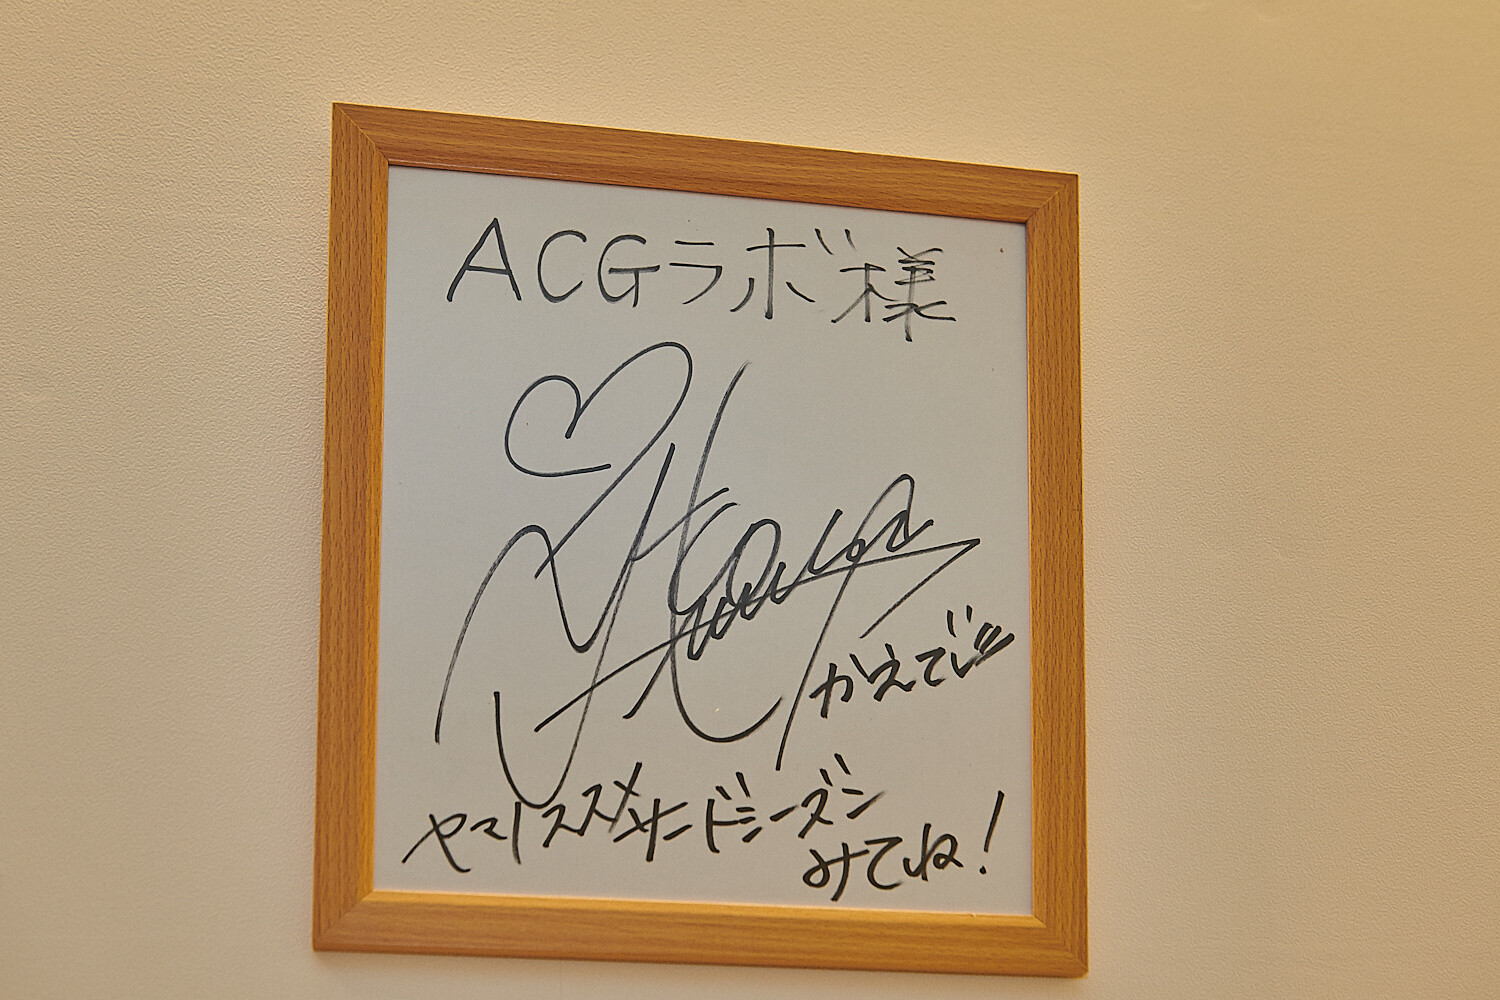 ACGラボ様
かえで
ヤマノススメサードシーズン
みてね!